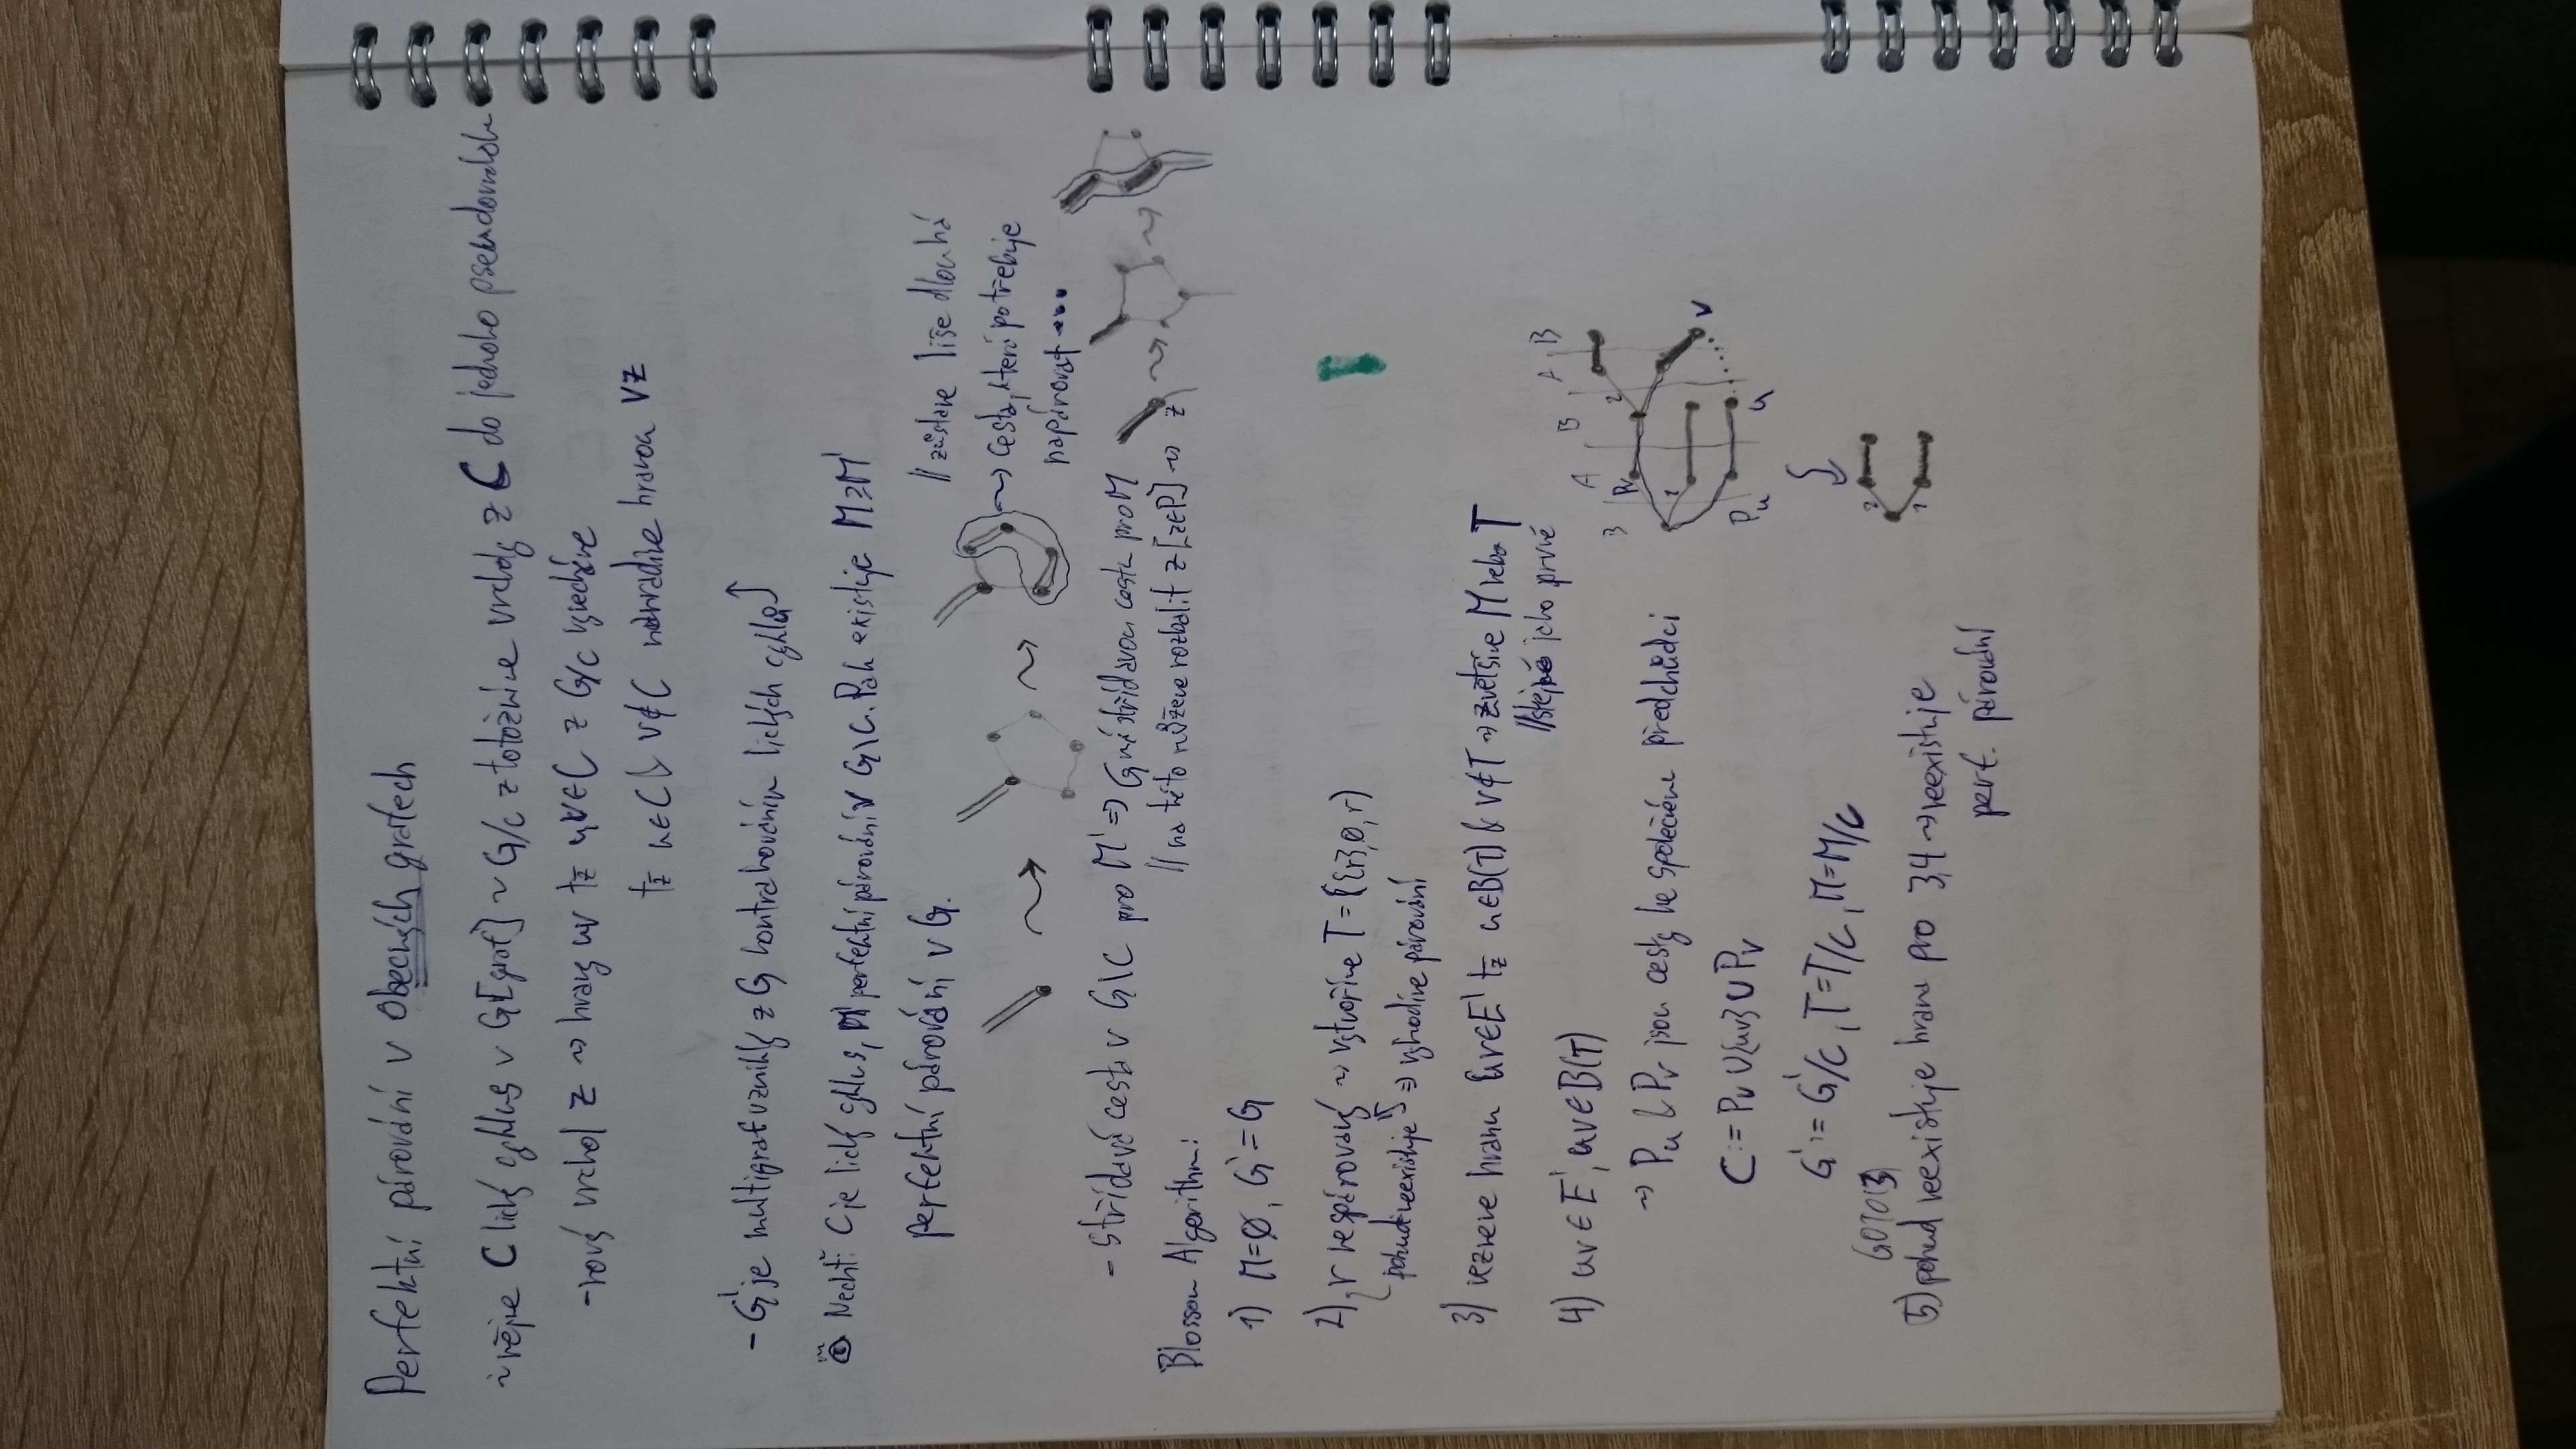 Perfektní párování v obecných grafech
~ mějme C lichý cyklus v G[graf] ~ G/C ztotožníme vrcholy z C do jednoho pseudovrcholu
- nový vrchol z ~> hrany uv tž u,v∈C z G/C vyjedeme
tž u∈C & v∉C nahradíme hranou vz
- G' je multigraf vzniklý z G kontrahováním lichých cyklů
Nechť: C je lichý cyklus, M' perfektní párování v G\C. Pak existuje M⊇M'
perfektní párování v G.
// zůstane liše dlouhá
~> cesta, která potřebuje
napárovat
- střídavá cesta v G\C pro M' => G má střídavou cestu pro M
// na této můžeme rozbalit z [z∈P] ~> z
Blossom Algorithm:
1) M=∅, G'=G
2) r nespárovaný ~ vytvoříme T=({r},∅,r)
pokud neexistuje => vyhodíme párování
3) vezmeme hranu uv∈E' tž u∈B(T) & v∉T => zvětšíme M nebo T
// stejně jeho prvně
4) uv∈E', u,v∈B(T)
~> Pu & Pv jsou cesty ke společném předchůdci
C := Pu ∪{uv} ∪ Pv
G' := G'/C, T=T/C, M=M/C
GOTO(3)
5) pokud neexistuje hrana pro 3,4 ~> neexistuje
perf. párování
B A B A B
Pv 2 v
1
Pu u
2
1